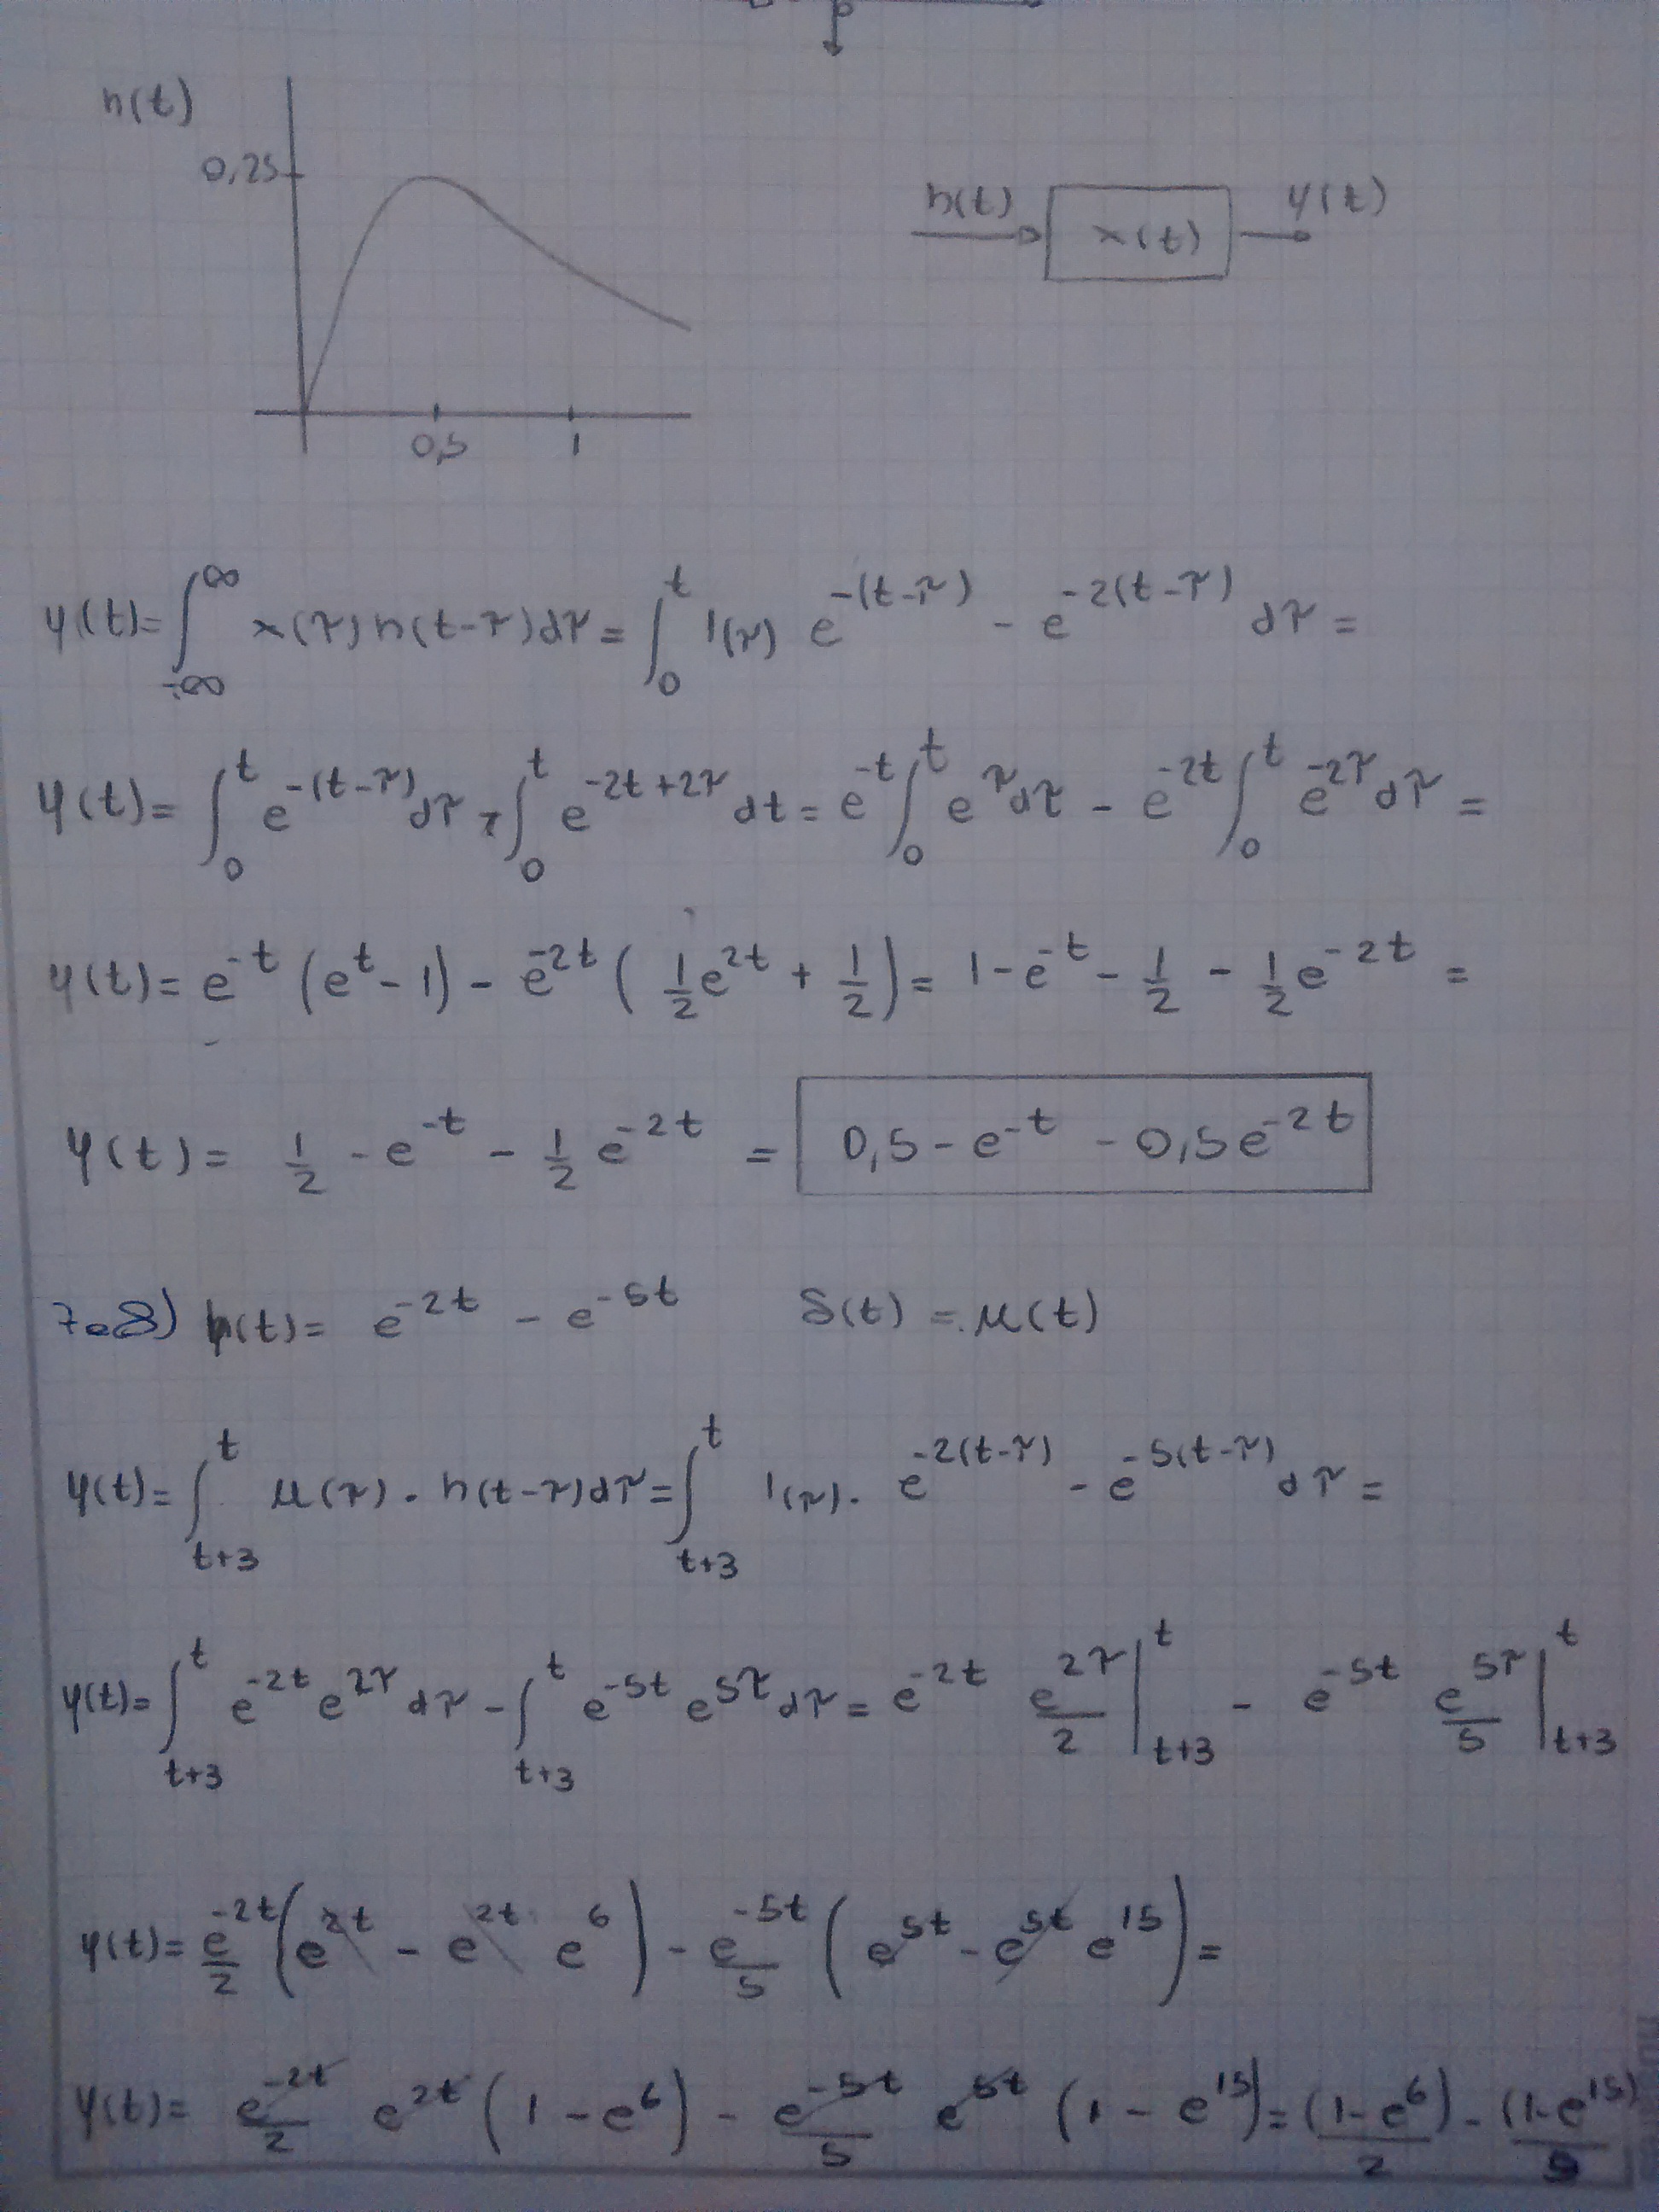 h(t)
0,25
h(t) x(t) y(t)
0,5 1
y(t)= ∫_{-∞}^{∞} x(τ) h(t-τ)dτ = ∫_0^t 1(τ) e^{-(t-τ)} - e^{-2(t-τ)} dτ =
y(t)= ∫_0^t e^{-(t-τ)} dτ - ∫_0^t e^{-2t+2τ} dt = e^{-t} ∫_0^t e^{τ} dτ - e^{-2t} ∫_0^t e^{-2τ} dτ =
y(t)= e^{-t} (e^t - 1) - e^{-2t} ( 1/2 e^{2t} + 1/2 ) = 1 - e^{-t} - 1/2 - 1/2 e^{-2t} =
y(t)= 1/2 - e^{-t} - 1/2 e^{-2t} = 0,5 - e^{-t} - 0,5e^{-2t}
7.8) h(t)= e^{-2t} - e^{-5t} δ(t) = μ(t)
y(t)= ∫_{t+3}^t μ(τ) . h(t-τ)dτ = ∫_{t+3}^t 1(τ). e^{-2(t-τ)} - e^{-5(t-τ)} dτ =
y(t)= ∫_{t+3}^t e^{-2t} e^{2τ} dτ - ∫_{t+3}^t e^{-5t} e^{5τ} dτ = e^{-2t} e^{2τ}/2 |_{t+3}^t - e^{-5t} e^{5τ}/5 |_{t+3}^t
y(t)= e^{-2t}/2 (e^{2t} - e^{2t} e^6) - e^{-5t}/5 (e^{5t} - e^{5t} e^{15}) =
y(t)= e^{-2t}/2 e^{2t} (1 - e^6) - e^{-5t}/5 e^{5t} (1 - e^{15}) = (1-e^6)/2 - (1-e^{15})/5